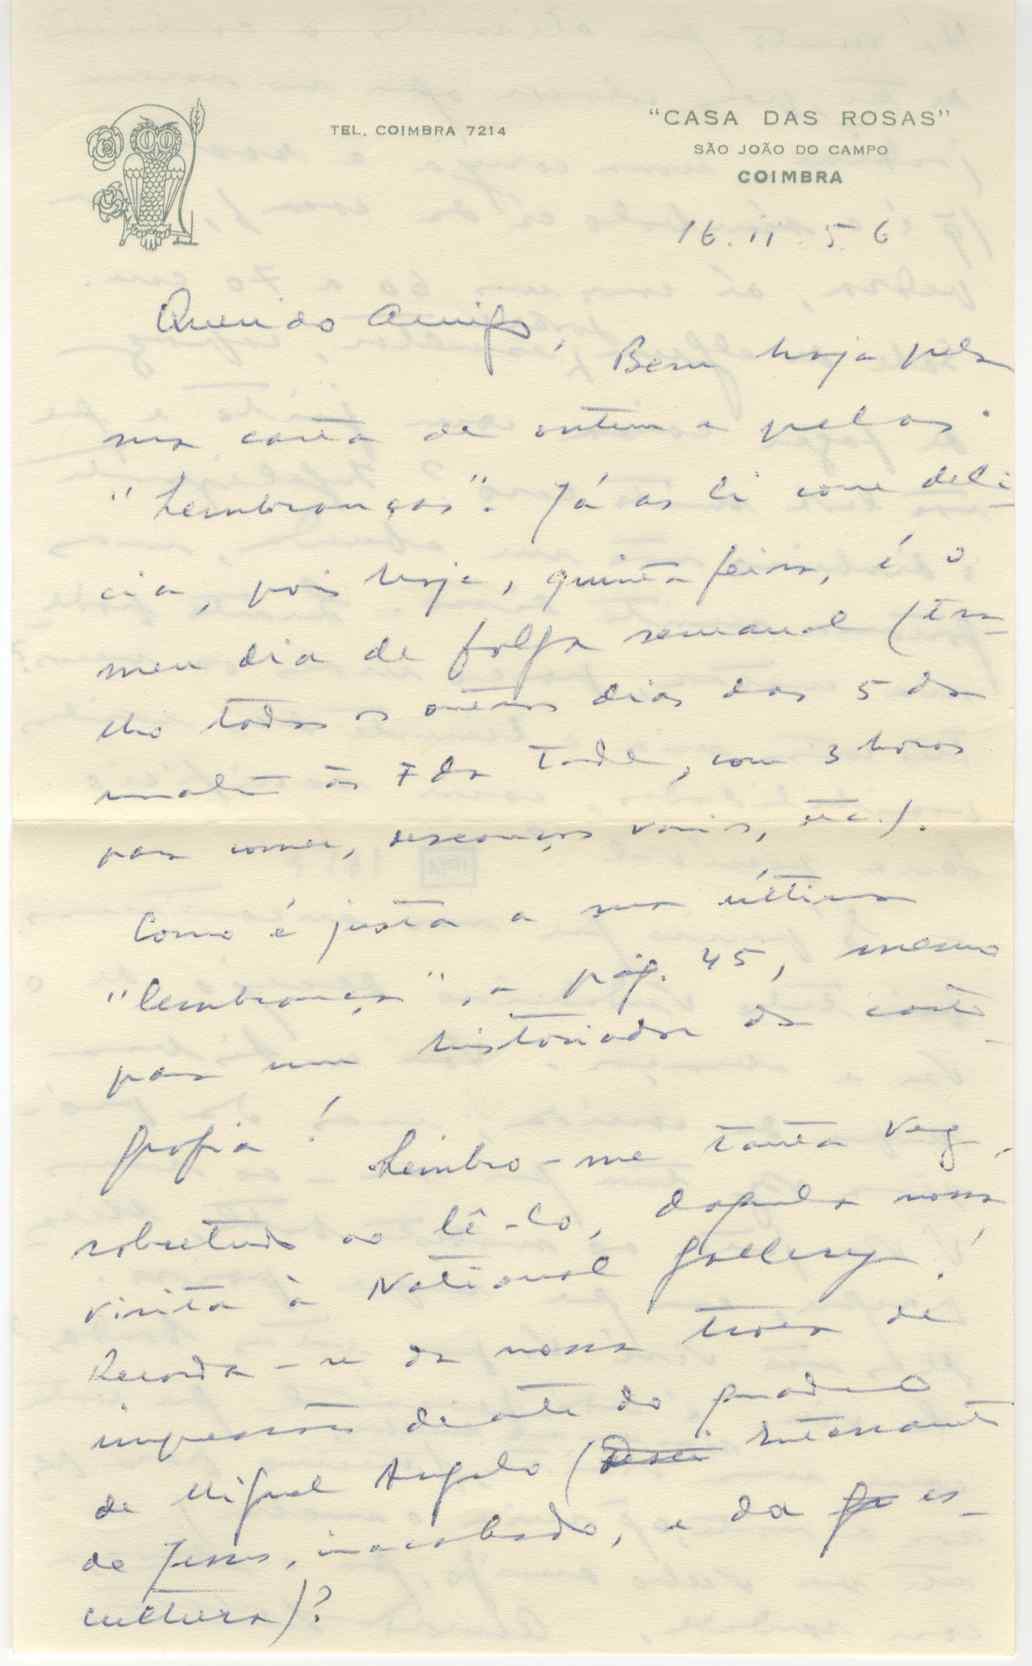 TEL. COIMBRA 7214
"CASA DAS ROSAS"
SÃO JOÃO DO CAMPO
COIMBRA
16.II.56
Querido Amigo,
Bem haja pela
sua carta de ontem e pelas
"Lembranças". Já as li com delí-
cia, pois hoje, quinta feira, é o
meu dia de folga semanal (tra-
lho todos os outros dias das 5 da
manhã às 7 da tarde, com 3 horas
para comer, descanços vários, etc.).
Como é justa a sua última
"lembrança", a pág. 45, mesmo
para um historiador da carto-
grafia! Lembro-me tanta vez,
sobretudo ao lê-lo, daquela nossa
visita à National Gallery!
Recorda-se da nossa troca de
impressões diante do quadro
de Miguel Angelo (
de Jesus, inacabado, e da es-
cultura)?